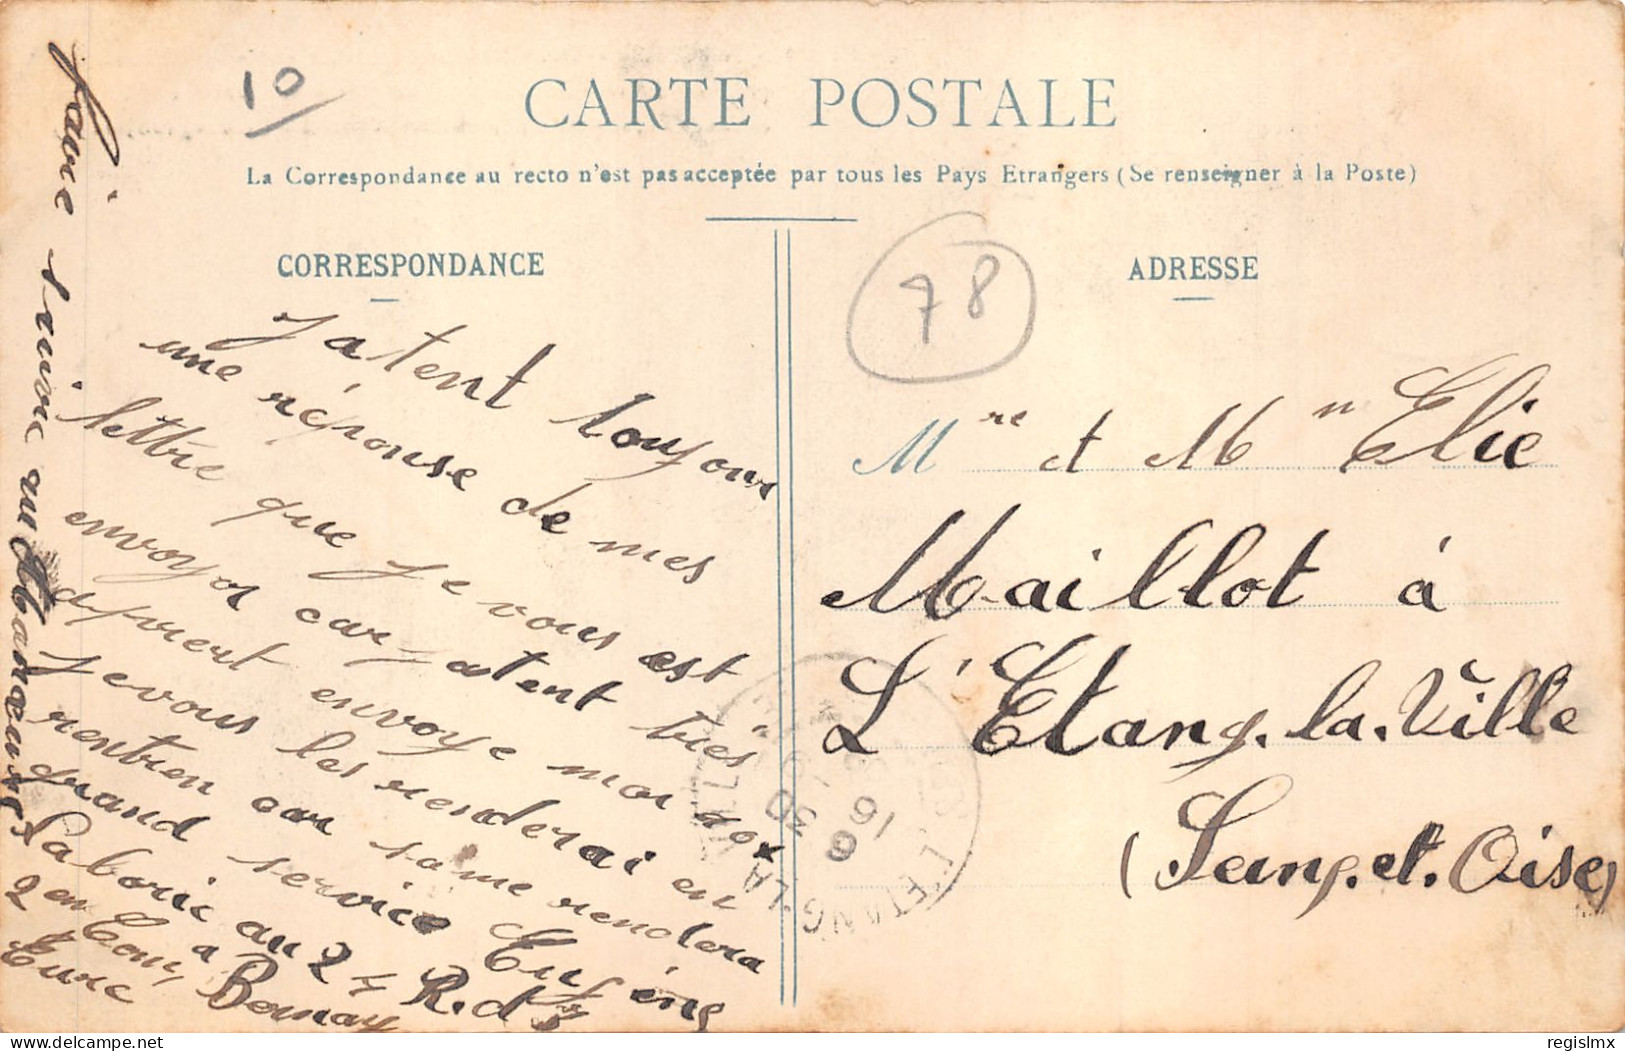 10
CARTE POSTALE
La Correspondance au recto n'est pas acceptée par tous les Pays Etrangers (Se renseigner à la Poste)
CORRESPONDANCE
J atent toujour
une réponse de mes
lettre que je vous est
envoyer car j atent tres
aprient envoye moi
je vous les renderai en
rentien car sa me rendera
grand service Eugène
Laborie au 24 R. d
2 em Com, a Bernay
Eure
faire suivre au Manœuvres
ADRESSE
78
Mre et Mn Elie
Maillot à
L'Etang.la.Ville
(Seing.et.Oise)
L'ETANG LA VILLE
16 30
6
regislmx
delcampe.net